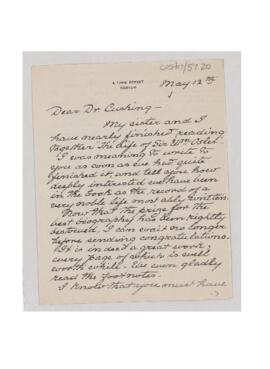 CUS417/57.20
4 LIME STREET
BOSTON
May 12th
Dear Dr. Cushing -
My sister and I
have nearly finished reading
together The Life of Sir Wm Osler.
I was meaning to write to
you as soon as we had quite
finished it, and tell you how
deeply interested we have been
in the book as the record of a
very noble life most ably written.
Now that the prize for the
best biography has been rightly
bestowed, I can wait no longer
before sending congratulations.
It is indeed a great work,
every page of which is well
worth while. We even gladly
read the footnotes.
I know that you must have